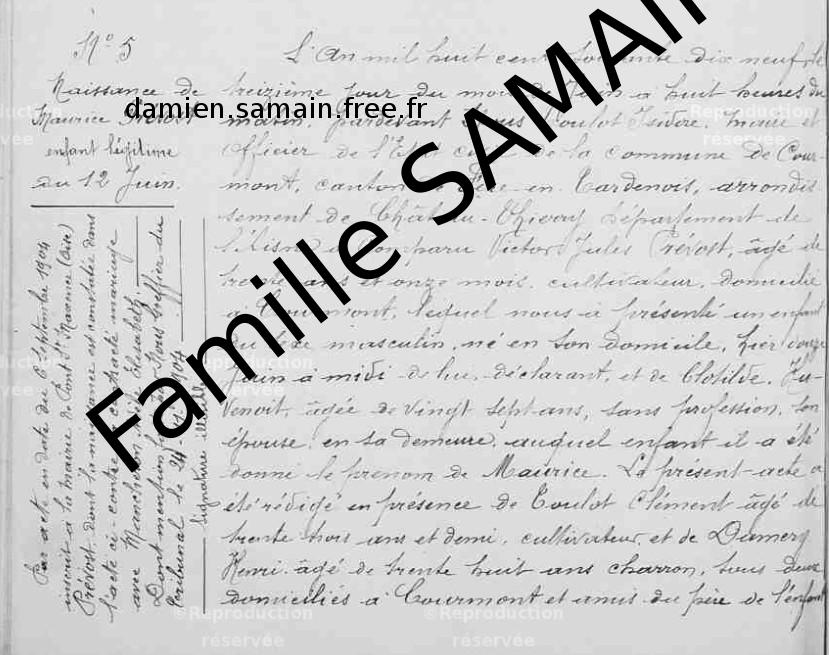 N° 5
Naissance de
Maurice Prévost
enfant légitime
du 12 Juin.
L'An mil huit cent soixante dix neuf, le
treizième jour du mois de Juin à huit heures du
matin, pardevant Nous Toulot Isidore, maire et
officier de l'Etat civil de la commune de Cour-
mont, canton de Fère en Tardenois, arrondis-
sement de Château-Thierry département de
l'Aisne a comparu Victor Jules Prévost, âgé de
trente ans et onze mois, cultivateur, domicilié
à Courmont, lequel nous a présenté un enfant
du sexe masculin, né en son domicile, hier douze
Juin à midi de lui, déclarant, et de Clotilde,
âgée de vingt sept ans, sans profession, son
épouse, en sa demeure, auquel enfant il a été
donné le prénom de Maurice. Le présent acte a
été rédigé en présence de Toulot Clément âgé de
trente trois ans et demi, cultivateur, et de Damery
Henri, âgé de trente huit ans charron, tous deux
domiciliés à Courmont et amis du père de l'enfant
Par acte en date du septembre 1904
inscrit à la mairie de Pont Ste Maxence (Oise)
Prévost dont la naissance est constatée dans
l'acte ci-contre a contracté mariage
avec Elisabeth
Dont mention Nous Greffier du
tribunal le 24 1904
Signature illisible
damien.samain.free.fr
Famille SAMAIN
©Reproduction
réservée
©Reproduction
réservée